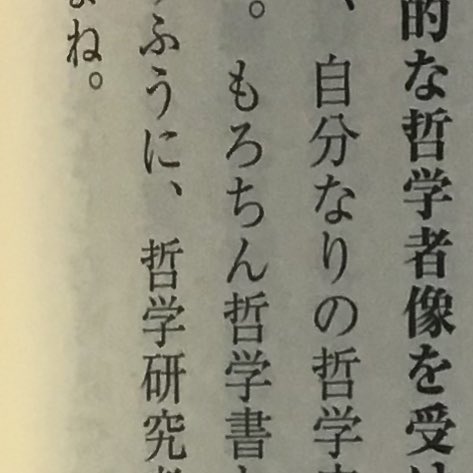 的な哲学者像を受
、自分なりの哲学
。もろちん哲学書
ふうに、哲学研究
よね。